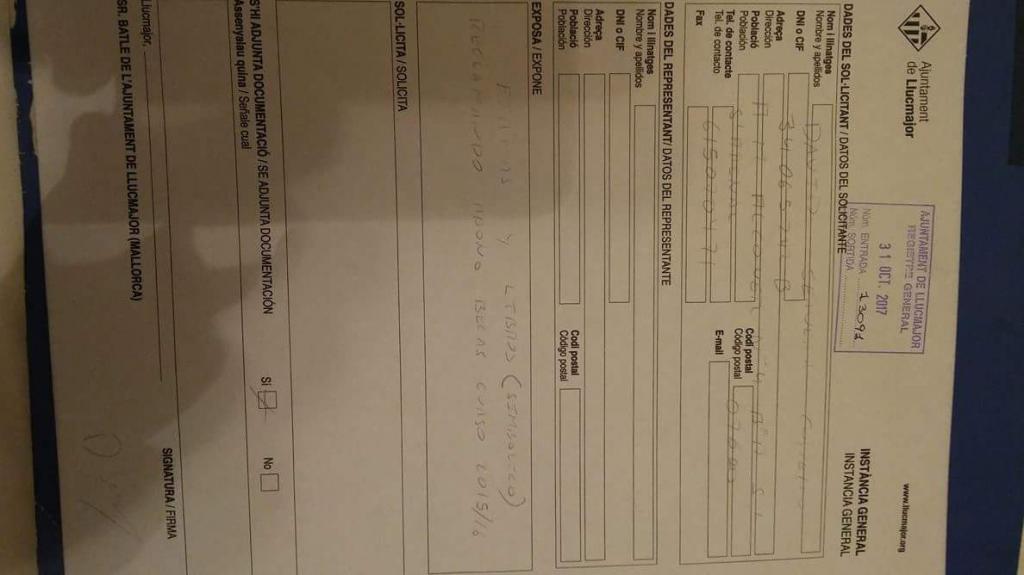 Ajuntament
de Llucmajor
www.llucmajor.org
AJUNTAMENT DE LLUCMAJOR
REGISTRE GENERAL
31 OCT. 2017
Núm. ENTRADA 13092
Núm. SORTIDA
INSTÀNCIA GENERAL
INSTANCIA GENERAL
DADES DEL SOL·LICITANT / DATOS DEL SOLICITANTE
Nom i llinatges
Nombre y apellidos
DAVID
DNI o CIF
Adreça
Dirección
Població
Población
Codi postal
Código postal
Tel. de contacte
Tel. de contacto
E-mail
Fax
DADES DEL REPRESENTANT/ DATOS DEL REPRESENTANTE
Nom i llinatges
Nombre y apellidos
DNI o CIF
Adreça
Dirección
Població
Población
Codi postal
Código postal
EXPOSA / EXPONE
Y LIBROS (SIMBOLICO)
RECLAMANDO ABONO BECAS CURSO 2015/16
SOL·LICITA / SOLICITA
S'HI ADJUNTA DOCUMENTACIÓ / SE ADJUNTA DOCUMENTACIÓN
Sí
No
Assenyalau quina / Señale cual
SIGNATURA / FIRMA
Llucmajor,
SR. BATLE DE L'AJUNTAMENT DE LLUCMAJOR (MALLORCA)